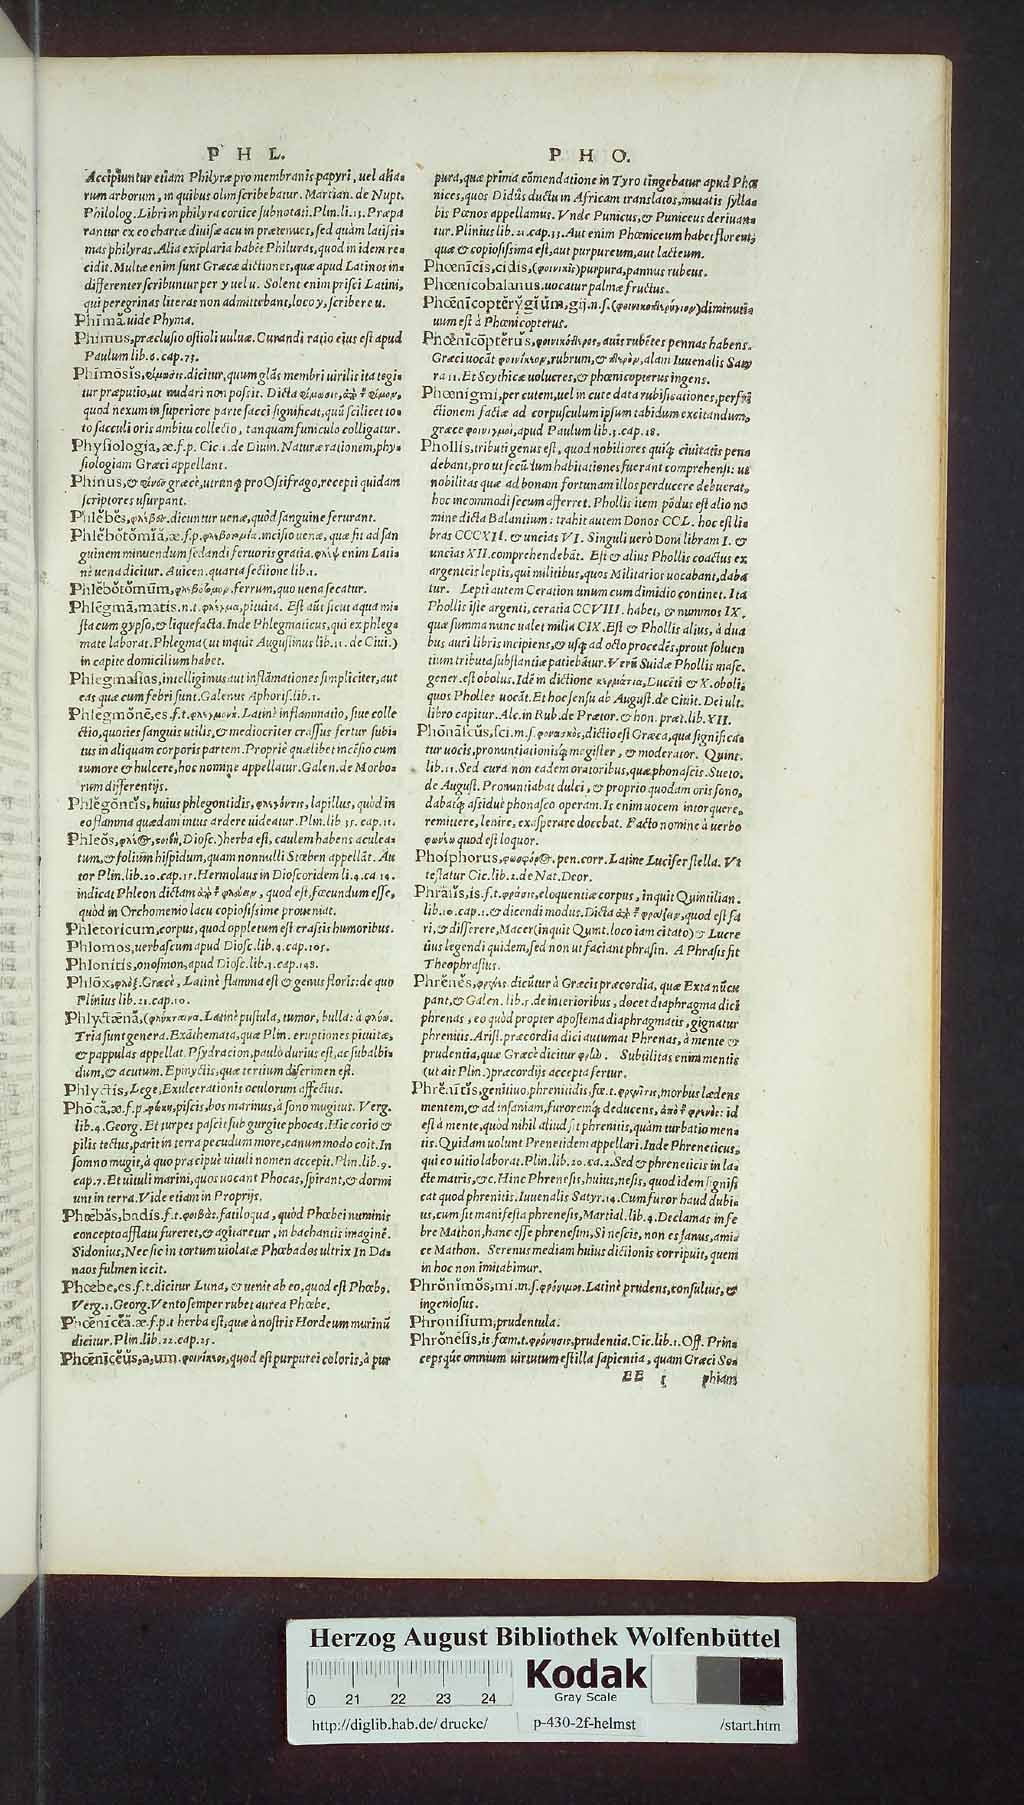 P H L.
Accipiuntur etiam Philyræ pro membranis papyri, uel alia-
rum arborum, in quibus olim scribebatur. Martian. de Nupt.
Philolog. Libri in philyra cortice subnotati. Plin. li. 13. Præpa
rantur ex eo chartæ diuisæ acu in prætenues, sed quàm latissi-
mas philyras. Alia exēplaria habēt Philuras, quod in idem re-
cidit. Multæ enim sunt Græcæ dictiones, quæ apud Latinos in-
differenter scribuntur per y uel u. Solent enim prisci Latini,
qui peregrinas literas non admittebant, loco y, scribere u.
Phīmă. uide Phyma.
Phimus, præclusio ostioli uuluæ. Curandi ratio eius est apud
Paulum lib. 6. cap. 73.
Phīmōsis, φίμωσις. dicitur, quum glās membri uirilis ita tegi-
tur præputio, ut nudari non possit. Dicta φίμωσις, ἀπὸ τ φίμον,
quod nexum in superiore parte sacci significat, quū scilicet to-
to sacculi oris ambitu collectio, tanquam funiculo colligatur.
Physiologia, æ. f. p. Cic. 1. de Diuin. Naturæ rationem, phy-
siologiam Græci appellant.
Phinus, & φίνιν græcè, utrunq; pro Ossifrago, recepti quidam
scriptores usurpant.
Phlĕbĕs, φλέβες. dicuntur uenæ, quòd sanguine ferurant.
Phlĕbŏtŏmĭă, æ. f. p. φλεβοτομία. incisio uenæ, quæ fit ad san
guinem minuendum sedandi feruoris gratia. φλὲψ enim Lati-
nè uena dicitur. Auicen. quarta sectione lib. 1.
Phlĕbŏtŏmŭm, φλεβότομον, ferrum, quo uena secatur.
Phlēgmă, matis. n. t. φλέγμα, pituita. Est aūt sicut aqua mi-
sta cum gypso, & liquefacta. Inde Phlegmaticus, qui ex phleg-
mate laborat. Phlegma (ut inquit Augustinus lib. 11. de Ciui.)
in capite domicilium habet.
Phlegmasias, intelligimus aut inflāmationes simpliciter, aut
eas quæ cum febri sunt. Galenus Aphoris. lib. 1.
Phlegmŏnē, es. f. t. φλεγμονή. Latinè inflammatio, siue colle
ctio, quoties sanguis utilis, & mediocriter crassus fertur subi-
tus in aliquam corporis partem. Propriè quælibet incēsio cum
tumore & hulcere, hoc nomine appellatur. Galen. de Morbo-
rum differentijs.
Phlĕgōntĭs, huius phlegontidis, φλεγόντις, lapillus, quòd in
eo flamma quædam intus ardere uideatur. Plin. lib. 35. cap. 11.
Phleōs, Diosc.) herba est, caulem habens aculea-
tum, & folium hispidum, quam nonnulli Stœben appellāt. Au
tor Plin. lib. 20. cap. 15. Hermolaus in Dioscoridem li. 4. ca. 14.
indicat Phleon dictam ἀπὸ τ φλύειν, quod est, fœcundum esse,
quòd in Orchomenio lacu copiosissime proueniat.
Phletoricum, corpus, quod oppletum est crassis humoribus.
Phlomos, uerbascum apud Diosc. lib. 4. cap. 105.
Phlonitis, onosmon, apud Diosc. lib. 3. cap. 148.
Phlōx, φλὸξ. Græcè, Latinè flamma est & genus floris: de quo
Plinius lib. 21. cap. 10.
Phlyctænă, (φλύκταινα. Latinè pustula, tumor, bulla: à φλύω.
Tria sunt genera. Exāthemata, quæ Plin. eruptiones pituitæ,
& pappulas appellat. Psydracion, paulò durius est, ac subalbi-
dum, & acutum. Epinyctis, quæ tertium discrimen est.
Phlyctis, Lege, Exulcerationis oculorum affectus.
Phōcă, æ. f. p. φώκη, piscis, bos marinus, à sono mugitus. Verg.
lib. 4. Georg. Et turpes pascit sub gurgite phocas. Hic corio &
pilis tectus, parit in terra pecudum more, canum modo coit. In
somno mugit, à quo præcipuè uituli nomen accepit. Plin. lib. 9.
cap. 7. Et uituli marini, quos uocant Phocas, spirant, & dormi
unt in terra. Vide etiam in Proprijs.
Phœbăs, badis. f. t. φοιβὰς. fatiloqua, quòd Phœbei numinis
concepto afflatu fureret, & agitaretur, in bachantis imaginē.
Sidonius, Nec sic in tortum uiolatæ Phœbados ultrix In Da-
naos fulmen iecit.
Phœbe, es. f. t. dicitur Luna, & uenit ab eo, quod est Phœb9.
Verg. 1. Georg. Vento semper rubet aurea Phœbe.
Phœnīcĕă. æ. f. p. t herba est, quæ à nostris Hordeum murinū
dicitur. Plin. lib. 22. cap. 25.
Phœnīcĕŭs, a, um. φοινίκεος, quod est purpurei coloris, à pur
P H O.
pura, quæ prima cōmendatione in Tyro tingebatur apud Phœ
nices, quos Didûs ductu in Africam translatos, mutatis sylla-
bis Pœnos appellamus. Vnde Punicus, & Puniceus deriuan-
tur. Plinius lib. 21. cap. 33. Aut enim Phœniceum habet florem,
quæ & copiosissima est, aut purpureum, aut lacteum.
Phœnīcis, cidis, (φοινικὶς) purpura, pannus rubeus.
Phœnicobalanus. uocatur palmæ fructus.
Phœnīcoptĕrўgĭŭm, gij. n. s. (φοινικοπτερύγιον) diminuti-
uum est à Phœnicopterus.
Phœnīcŏptĕrŭs, φοινικόπτερος, auis rubētes pennas habens.
Græci uocāt φοινίκεον, rubrum, & πτερὸν, alam Iuuenalis Saty
ra 11. Et Scythicæ uolucres, & phœnicopterus ingens.
Phœnigmi, per cutem, uel in cute data rubificationes, perfri
ctionem factæ ad corpusculum ipsum tabidum excitandum,
græce φοινιγμοὶ, apud Paulum lib. 3. cap. 18.
Phollis, tributi genus est, quod nobiliores quiq; ciuitatis pen-
debant, pro ut secūdum habitationes fuerant comprehensi: ut
nobilitas quæ ad bonam fortunam illos perducere debuerat,
hoc incommodi secum afferret. Phollis item pōdus est alio no
mine dicta Balantium: trahit autem Donos CCL. hoc est li-
bras CCCXII. & uncias VI. Singuli uerò Doni libram I. &
uncias XII. comprehendebāt. Est & alius Phollis coactus ex
argenteis leptis, qui militibus, quos Militarios uocabant, daba
tur. Lepti autem Ceration unum cum dimidio continet. Ita
Phollis iste argenti, ceratia CCVIII. habet, & nummos IX.
quæ summa nunc ualet milia CIX. Est & Phollis alius, à dua
bus auri libris incipiens, & usq; ad octo procedēs, prout soluen
tium tributa substantiæ patiebātur. Verū Suidæ Phollis masc.
gener. est obolus. Idē in dictione κερμάτια, Ducēti & X. oboli,
quos Pholles uocāt. Et hoc sensu ab August. de Ciuit. Dei ult.
libro capitur. Alc. in Rub. de Prætor. & hon. præt. lib. XII.
Phōnāscŭs, sci. m. s. φώνασκος, dictio est Græca, qua significa-
tur uocis, pronuntiationisq; magister, & moderator. Quint.
lib. 11. Sed cura non eadem oratoribus, quæ phonascis. Sueto.
de August. Pronuntiabat dulci, & proprio quodam oris sono,
dabatq; assiduè phonasco operam. Is enim uocem intorquere,
remittere, lenire, exasperare docebat. Facto nomine à uerbo
φωνέω quod est loquor.
Phosphorus, φωσφόρος. pen. corr. Latine Lucifer stella. Vt
testatur Cic. lib. 2. de Nat. Deor.
Phrăsĭs, is. f. t. φράσις, eloquentiæ corpus, inquit Quintilian.
lib. 10. cap. 1. & dicendi modus. Dicta ἀπὸ τ φράζειν, quod est fa
ri, & disserere, Macer (inquit Quint. loco iam citato) & Lucre
tius legendi quidem, sed non ut faciant phrasin. A Phrasis fit
Theophrastus.
Phrĕnĕs, φρένες. dicūtur à Græcis præcordia, quæ Exta nūcu
pant, & Galen. lib. 5. de interioribus, docet diaphragma dici
phrenas, eo quòd propter apostema diaphragmatis, gignatur
phrenitis. Arist. præcordia dici autumat Phrenas, à mente &
prudentia, quæ Græcè dicitur φρὴν. Subtilitas enim mentis
(ut ait Plin.) præcordijs accepta fertur.
Phrĕnītĭs, genitiuo, phrenitidis, fœ. t. φρενῖτις, morbus lædens
mentem, & ad insaniam, furoremq; deducens, ἀπὸ τ φρενὸς: id
est à mente, quòd nihil aliud sit phrenitis, quàm turbatio men-
tis. Quidam uolunt Prenetidem appellari. Inde Phreneticus,
qui eo uitio laborat. Plin. lib. 20. ca. 2. Sed & phreneticis in la-
cte matris, &c. Hinc Phrenesis, huius, nesis, quod idem signifi
cat quod phrenitis. Iuuenalis Satyr. 14. Cum furor haud dubi-
us, cum sit manifesta phrenesis, Martial. lib. 4. Declamas in fe
bre Mathon, hanc esse phrenesim, Si nescis, non es sanus, ami-
ce Mathon. Serenus mediam huius dictionis corripuit, quem
in hoc non imitabimur.
Phrŏnĭmŏs, mi. m. s. φρόνιμος. Latinè prudens, consultus, &
ingeniosus.
Phronisium, prudentula.
Phrŏnēsĭs, is fœm. t. φρόνησις, prudentia. Cic. lib. 1. Off. Prin-
cepsq́ue omnium uirtutum est illa sapientia, quam Græci So-
EE 3 phiam
Herzog August Bibliothek Wolfenbüttel
Kodak
Gray Scale
0 21 22 23 24
http://diglib.hab.de/drucke/ p-430-2f-helmst /start.htm